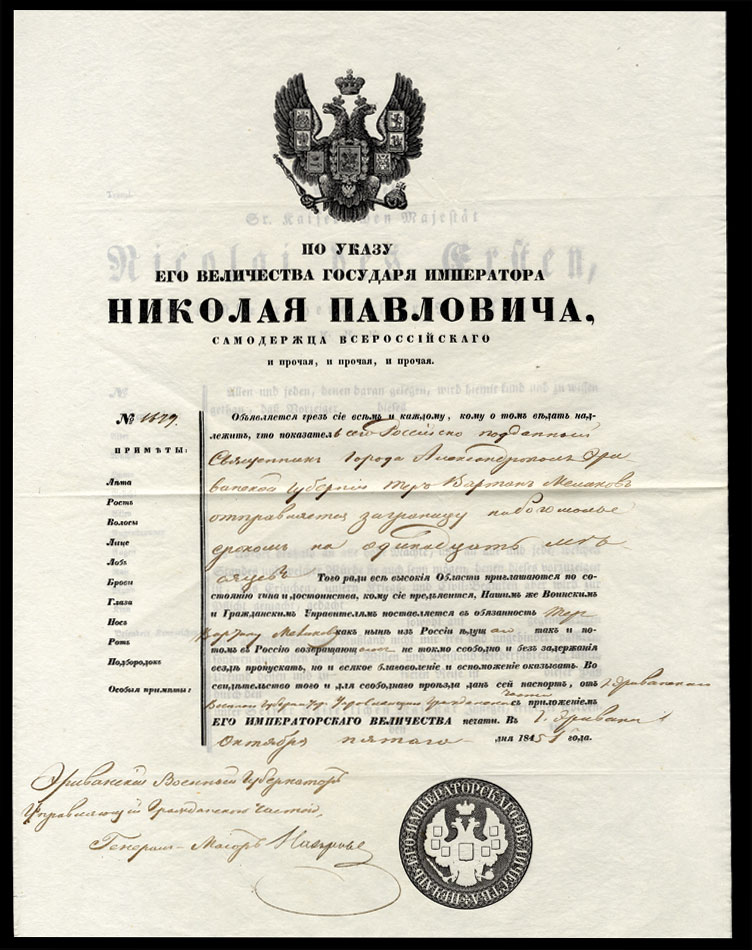 ПО УКАЗУ
ЕГО ВЕЛИЧЕСТВА ГОСУДАРЯ ИМПЕРАТОРА
НИКОЛАЯ ПАВЛОВИЧА,
САМОДЕРЖЦА ВСЕРОССІЙСКАГО
и прочая, и прочая, и прочая.
№ 1579.
ПРИМѢТЫ:
Лѣта
Ростъ
Волосы
Лице
Лобъ
Брови
Глаза
Носъ
Ротъ
Подбородокъ
Особыя примѣты:
Объявляется чрезъ сіе всѣмъ и каждому, кому о томъ вѣдать над-
лежитъ, что показатель сего Россійско подданный
Священникъ города Александрополя Эри
ванской Губерніи Теръ Вартанъ Меликовъ
отправляется заграницу на богомолье
срокомъ на одинадцать мѣ
сяцевъ Того ради всѣ высокія Области приглашаются по со-
стоянію чина и достоинства, кому сіе предъявится, Нашимъ же Воинскимъ
и Гражданскимъ Управителямъ поставляется въ обязанность Тер
Вартану Меликову какъ нынѣ изъ Россіи ѣдущ так и по-
томъ въ Россію возвращающ не токмо свободно и безъ задержанія
вездѣ пропускать, но и всякое благоволеніе и вспоможеніе оказывать. Во
свидѣтельство того и для свободнаго проѣзда данъ сей паспортъ, отъ г. Эриванскаго
Военнаго Губернатора Управляющаго Гражданскою частію съ приложеніемъ
ЕГО ИМПЕРАТОРСКАГО ВЕЛИЧЕСТВА печати. Въ г. Эривани
Октября пятаго дня 185 года.
Эриванскій Военный Губернаторъ
Управляющій Гражданскою частію,
Генералъ-Маіоръ
ПЕЧАТЬ ЕГО ИМПЕРАТОРСКАГО ВЕЛИЧЕСТВА